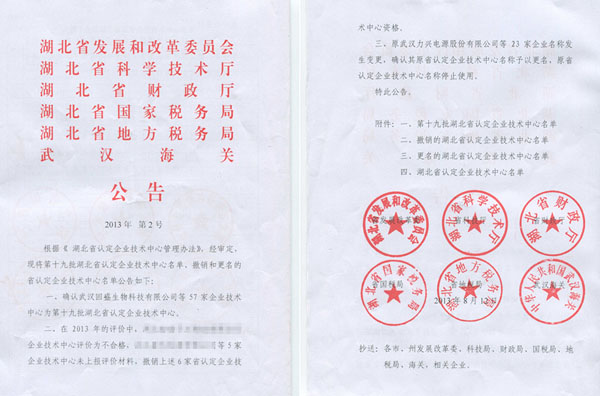 湖北省发展和改革委员会
湖北省科学技术厅
湖北省财政厅
湖北省国家税务局
湖北省地方税务局
武汉海关
公告
2013年 第2号
根据《湖北省认定企业技术中心管理办法》，经审定，
现将第十九批湖北省认定企业技术中心名单、撤销和更名的
省认定企业技术中心名单公告如下：
一、确认武汉回盛生物科技有限公司等57家企业技术
中心为第十九批湖北省认定企业技术中心。
二、在2013年的评价中，
企业技术中心评价为不合格，
等5家
企业技术中心未上报评价材料，撤销上述6家省认定企业技
术中心资格。
三、原武汉力兴电源股份有限公司等23家企业名称发
生变更，确认其原省认定企业技术中心名称予以更名，原省
认定企业技术中心名称停止使用。
特此公告。
附件：一、第十九批湖北省认定企业技术中心名单
二、撤销的湖北省认定企业技术中心名单
三、更名的湖北省认定企业技术中心名单
四、湖北省认定企业技术中心名单
湖北省发展和改革委员会
湖北省科学技术厅
湖北省财政厅
省国税局
省地税局
武汉海关
湖北省国家税务局
湖北省地方税务局
中华人民共和国武汉海关
2013年8月12日
抄送：各市、州发展改革委、科技局、财政局、国税局、地
税局、海关，相关企业。